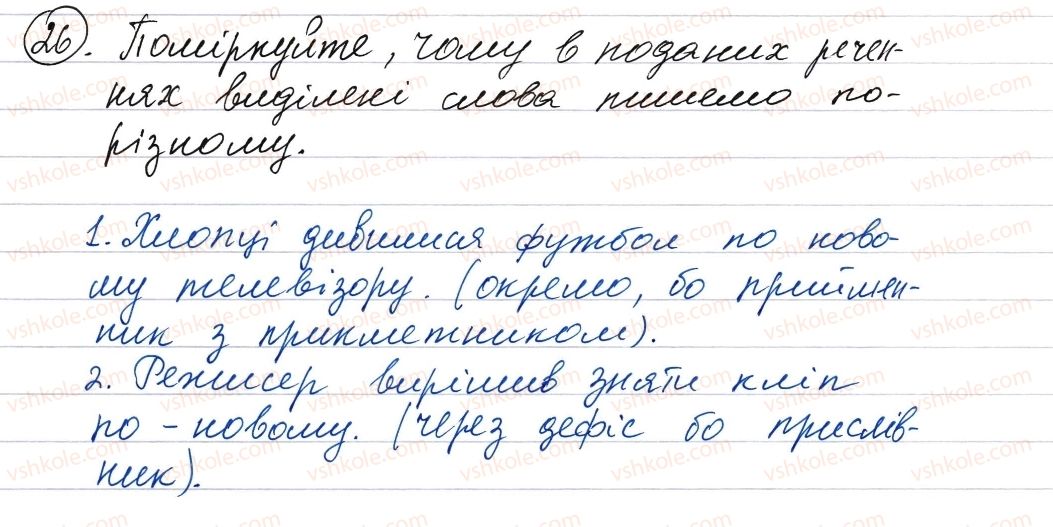 26. Поміркуйте, чому в поданих речен-
нях виділені слова пишемо по-
різному.
1. Хлопці дивилися футбол по ново-
му телевізору. (окремо, бо приймен-
ник з прикметником).
2. Режисер вирішив зняти кліп
по-новому. (через дефіс бо прислів-
ник).